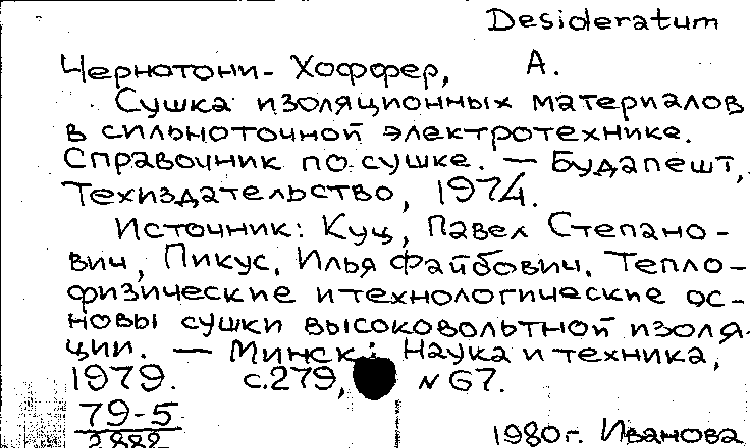 Desideratum
Чернотони- Хоффер, А.
Сушка изоляционных материалов
в сильноточной электротехнике.
Справочник по сушке. — Будапешт,
Техиздательство, 1974.
Источник: Куц, Павел Степано-
вич, Пикус, Илья Файбович. Тепло-
физические и технологические ос-
новы сушки высоковольтной изоля-
ции. — Минск: Наука и техника,
1979. с.279, N 67.
79-5
2882
1980г. Иванова